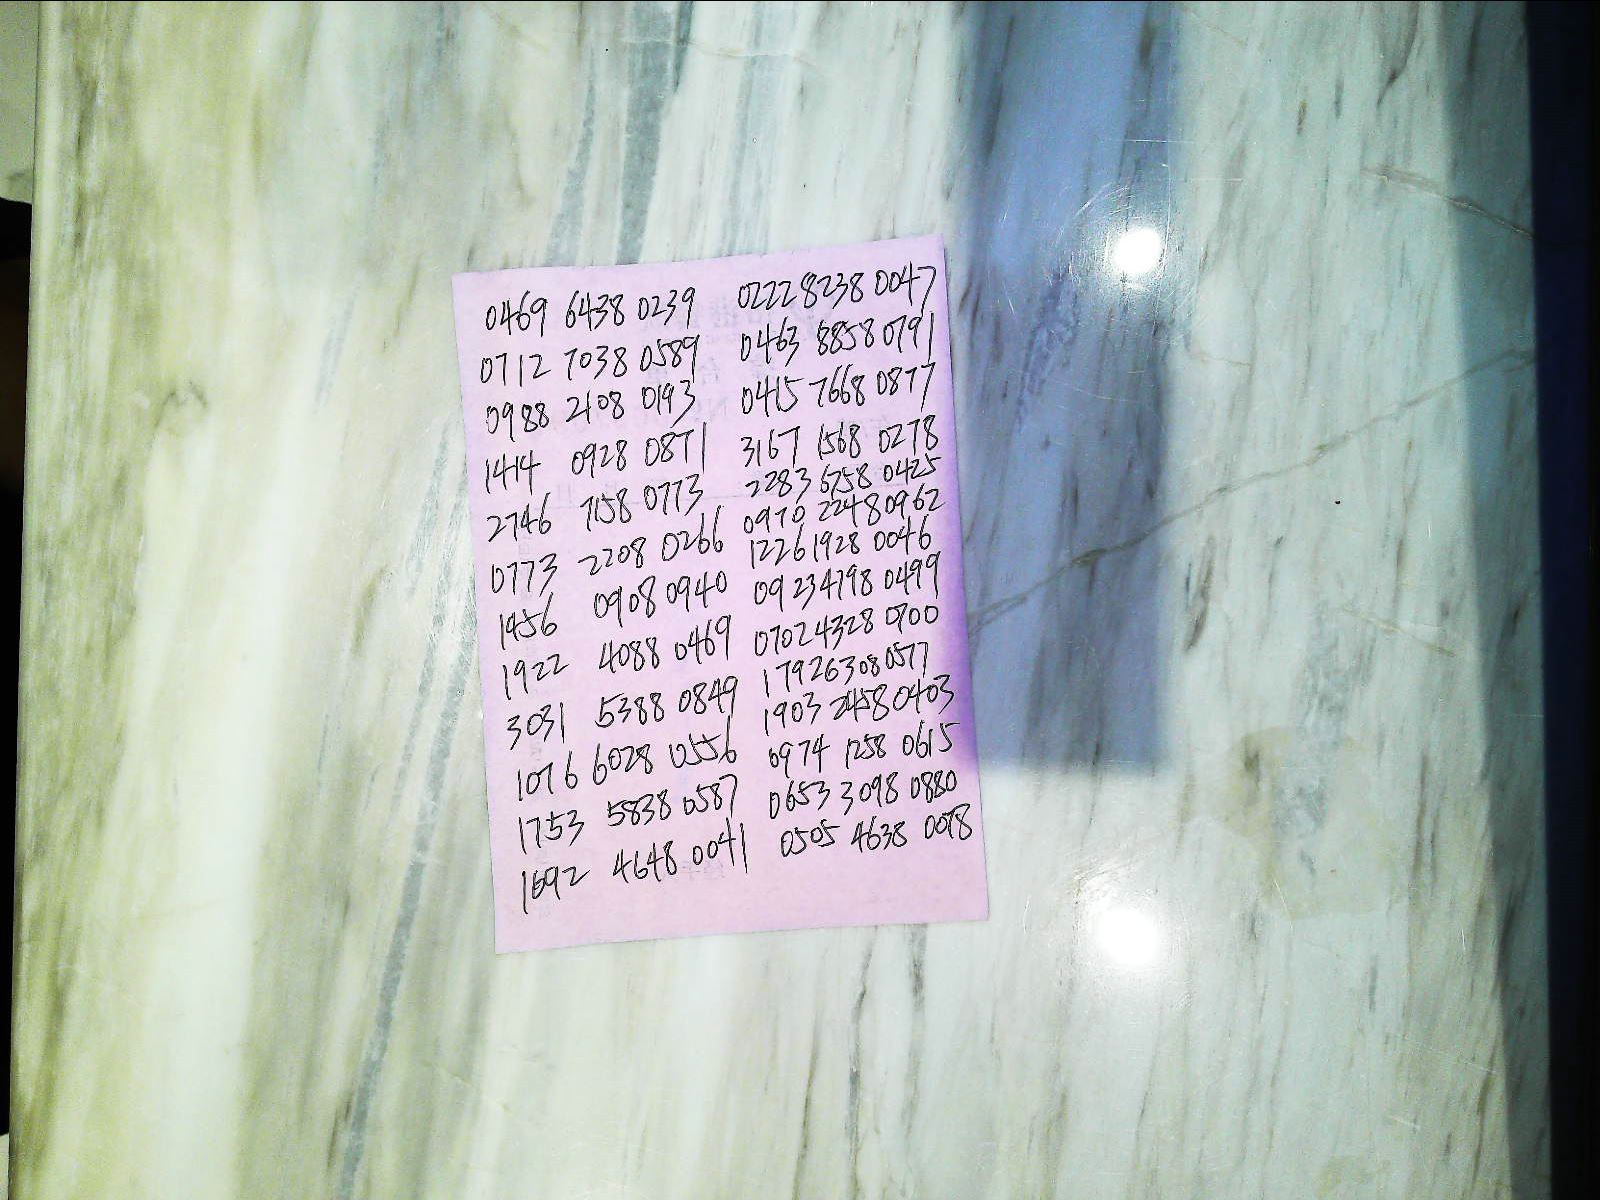 0469 6438 0239 0222 8238 0047
0712 7038 0589 0463 8858 0791
0988 2108 0193 0415 7668 0877
1414 0928 0871 3167 1568 0278
2746 7158 0773 2283 6758 0425
0773 2208 0266 0970 2248 0962
1456 0908 0940 1226 1928 0046
1922 4088 0469 0923 4798 0499
3031 5388 0849 0702 4328 0700
1076 6028 0556 1792 6308 0577
1753 5838 0587 1903 2458 0403
1692 4648 0041 0974 1258 0615
0653 3098 0880
0505 4638 0078